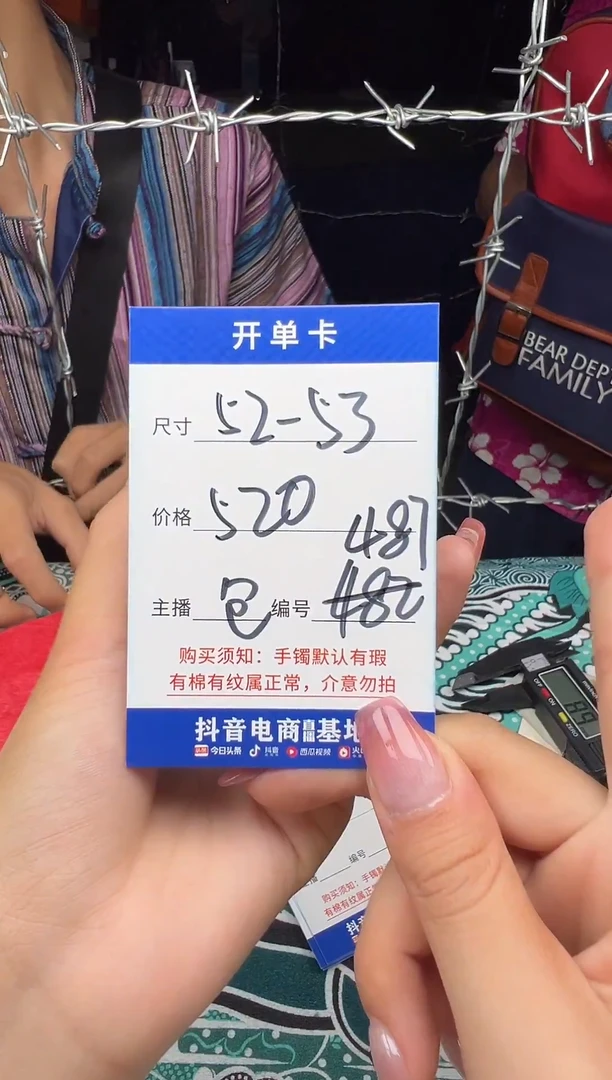 开单卡
尺寸 52-53
价格 520
487
主播 包 编号
购买须知：手镯默认有瑕
有棉有纹属正常，介意勿拍
抖音电商直播基地
今日头条 抖音 西瓜视频
BEAR DEPT
FAMILY
编号
购买须知：手镯
有棉有纹属正
OFF ON ZERO